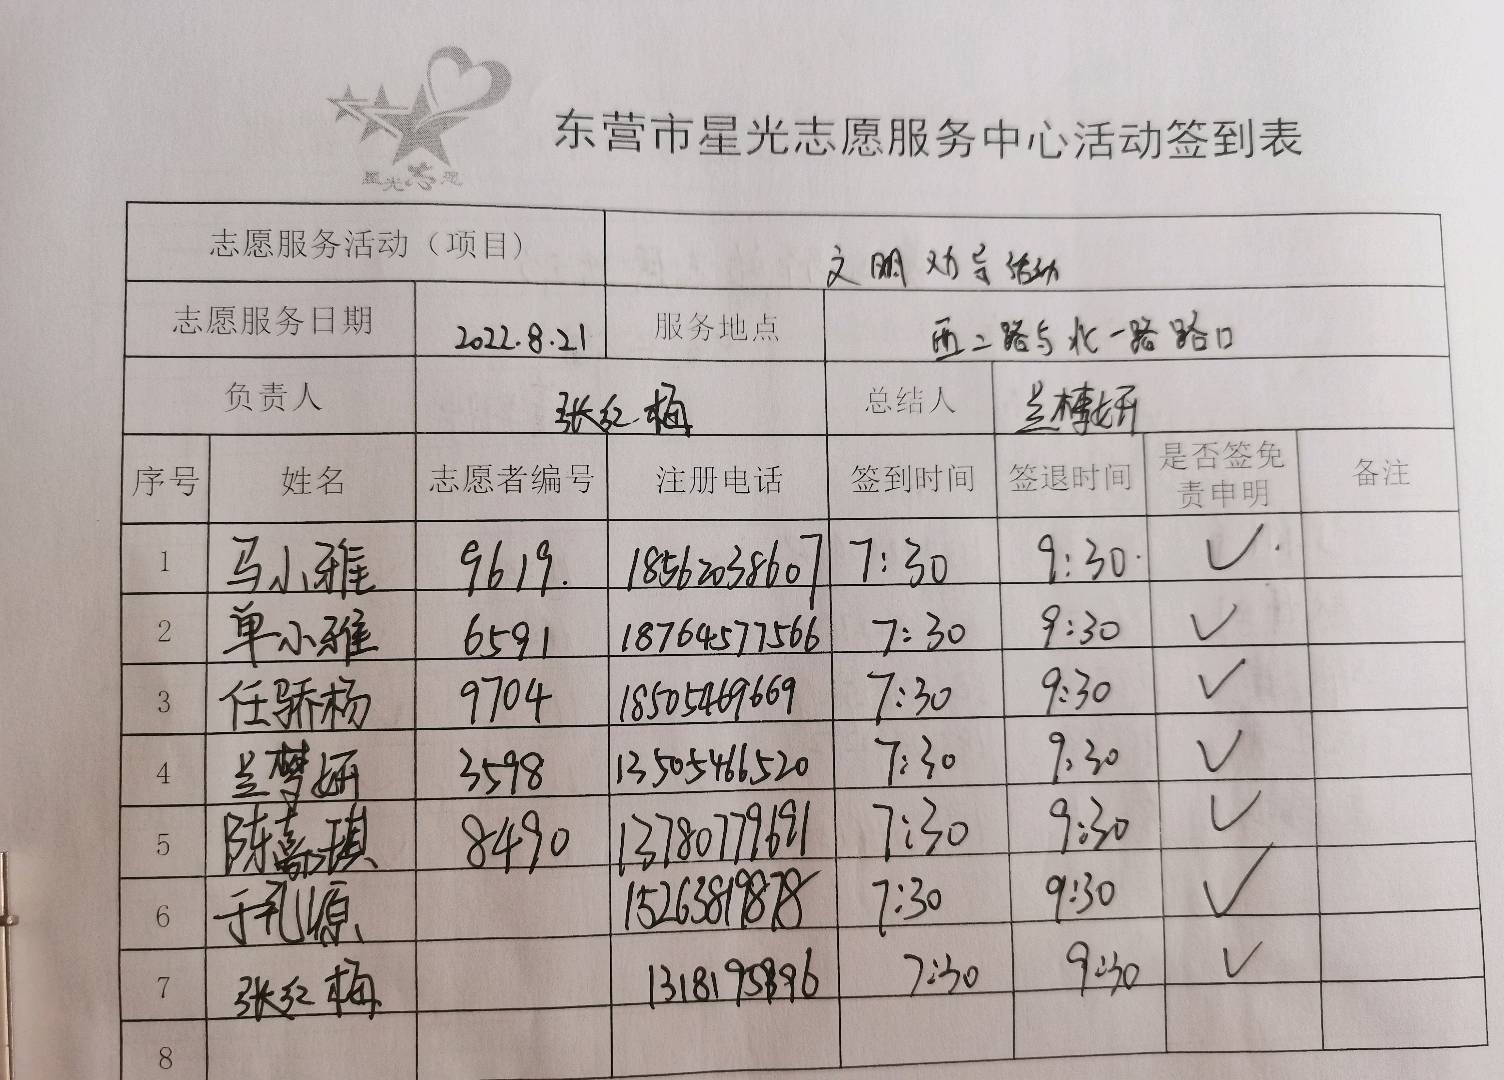 星光志愿
东营市星光志愿服务中心活动签到表
志愿服务活动（项目） 文明劝导活动
志愿服务日期 2022.8.21 服务地点 西二路与北一路路口
负责人 张红梅 总结人 兰梦妍
序号 姓名 志愿者编号 注册电话 签到时间 签退时间 是否签免责申明 备注
1 马小雅 9619. 18562038607 7:30 9:30 ✓
2 单小雅 6591 18764577566 7:30 9:30 ✓
3 任骄杨 9704 18505469669 7:30 9:30 ✓
4 兰梦妍 3598 13505466520 7:30 9:30 ✓
5 陈嘉琪 8490 13780779691 7:30 9:30 ✓
6 于孔源 15263819878 7:30 9:30 ✓
7 张红梅 7:30 9:30 ✓
8